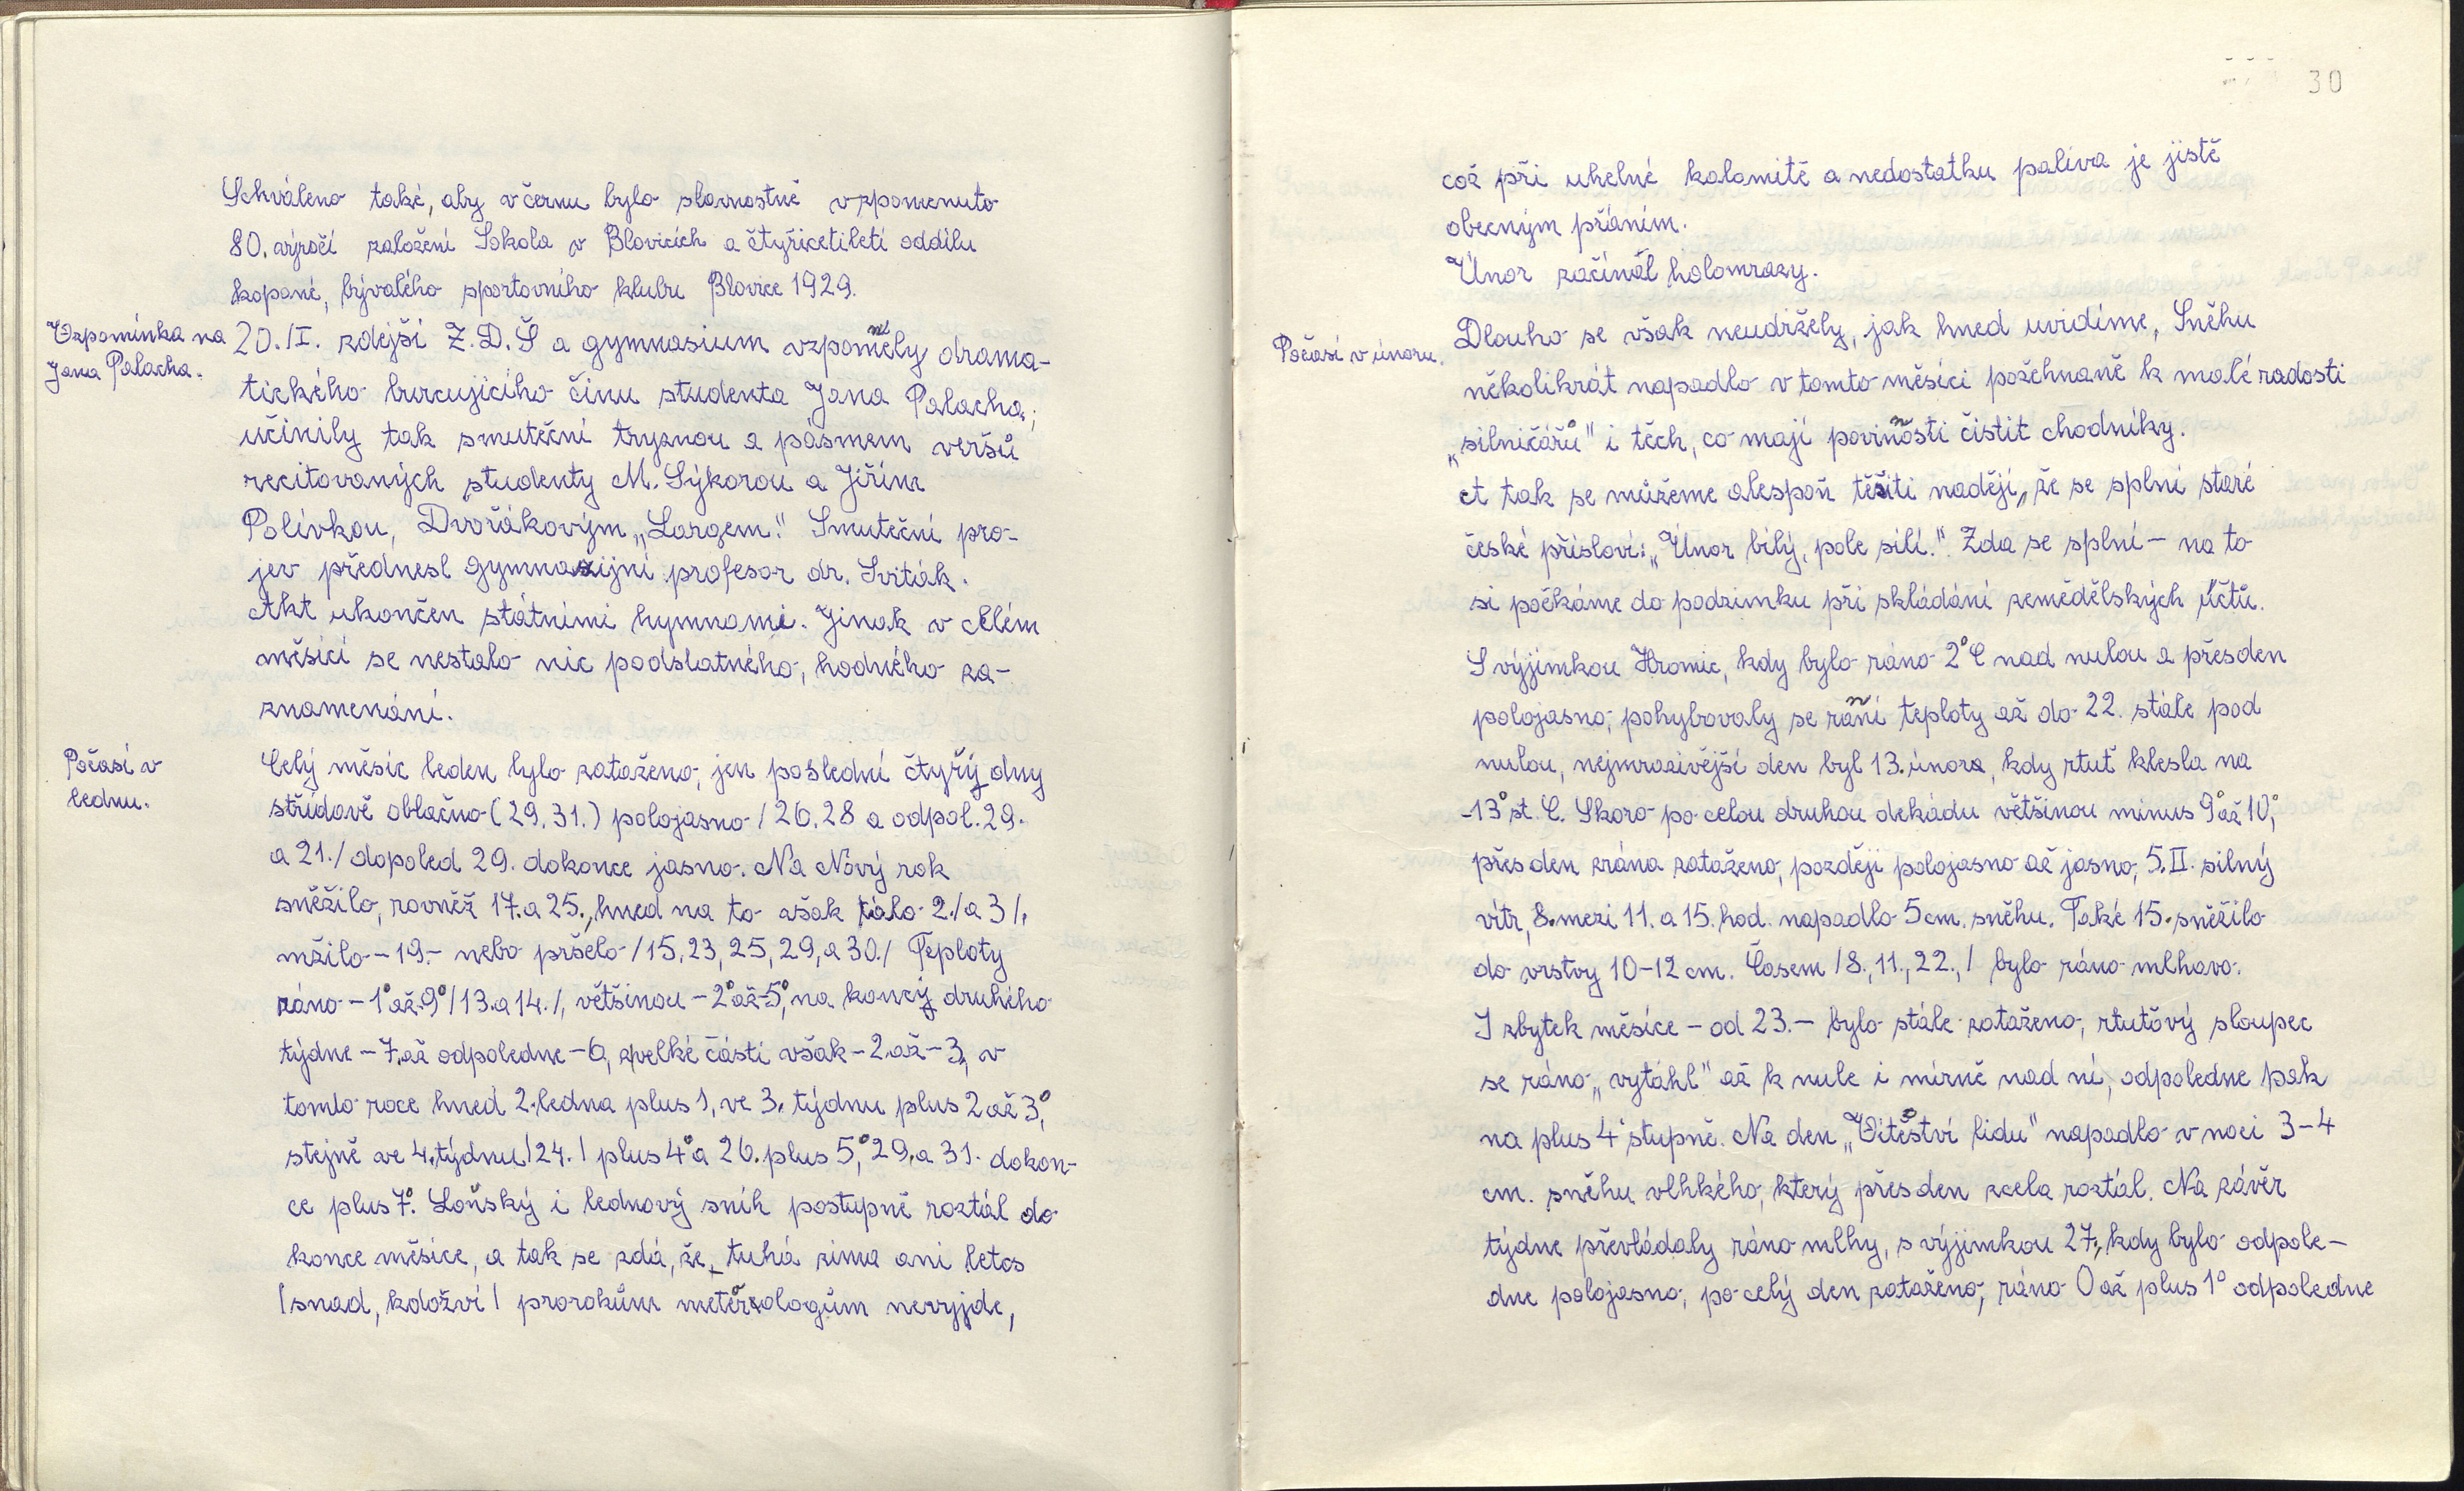 Schváleno také, aby v černu bylo slavnostně vzpomenuto
80. výročí založení Sokola v Blovicích a čtyřicetiletí oddílu
kopané, bývalého sportovního klubu Blovice 1929.
Vzpomínka na
Jana Palacha.
20./I. zdejší Z.D.Š a gymnasium vzpomněly drama-
tického burcujícího činu studenta Jana Palacha,
učinily tak smuteční tryznou a pásmem veršů
recitovaných studenty M. Sýkorou a Jiřím
Polívkou, Dvořákovým „Largem." Smuteční pro-
jev přednesl gymnasijní profesor dr. Sviták.
Akt ukončen státními hymnami. Jinak v celém
měsíci se nestalo nic podstatného, hodného za-
znamenání.
Počasí v
lednu.
Celý měsíc leden bylo zataženo, jen poslední čtyřy dny
střídavě oblačno (29, 31.) polojasno / 26, 28 a odpol. 29.
a 21./ dopoled 29. dokonce jasno. Na Nový rok
sněžilo, rovněž 17. a 25., hned na to však tálo 2./a 3/,
mžilo - 19. - nebo pršelo /15, 23, 25, 29, a 30./ Teploty
ráno - 1° až 9° /13. a 14./, většinou - 2° až -5°, na koncy druhého
týdne - 7, až odpoledne - 6, z velké části však - 2 až - 3, v
tomto roce hned 2. ledna plus 1, ve 3. týdnu plus 2 až 3°,
stejně ve 4. týdnu /24./ plus 4° a 26. plus 5°, 29. a 31. dokon-
ce plus 7°. Loňský i lednový sníh postupně roztál do
konce měsíce, a tak se zdá, že tuhá zima ani letos
/snad, kdožví/ prorokům meteorologům nevyjde,
30
což při uhelné kalamitě a nedostatku paliva je jistě
obecným přáním.
Únor začínal holomrazy.
Počasí v únoru.
Dlouho se však neudržely, jak hned uvidíme, Sněhu
několikrát napadlo v tomto měsíci požehnaně k malé radosti
„silničářů" i těch, co mají povinnosti čistit chodníky.
A tak se můžeme alespoň těšiti nadějí, že se splní staré
české přísloví: „Únor bílý, pole sílí." Zda se splní - na to
si počkáme do podzimku při skládání zemědělských účtů.
S výjimkou Hromic, kdy bylo ráno 2°C nad nulou a přes den
polojasno, pohybovaly se ranní teploty až do 22. stále pod
nulou, nejmrazivější den byl 13. února, kdy rtuť klesla na
-13° st. C. Skoro po celou druhou dekádu většinou minus 9° až 10°,
přes den zrána zataženo, později polojasno až jasno, 5. II. silný
vítr, 8. mezi 11. a 15. hod. napadlo 5 cm. sněhu. Také 15. sněžilo
do vrstvy 10-12 cm. Časem /8., 11., 22., / bylo ráno mlhavo.
I zbytek měsíce - od 23. - bylo stále zataženo, rtuťový sloupec
se ráno „vytáhl" až k nule i mírně nad ní, odpoledne pak
na plus 4 stupně. Na den „Vítězství lidu" napadlo v noci 3-4
cm. sněhu vlhkého, který přes den zcela roztál. Na závěr
týdne převládaly ráno mlhy, s výjimkou 27., kdy bylo odpole-
dne polojasno, po celý den zataženo, ráno 0 až plus 1° odpoledne